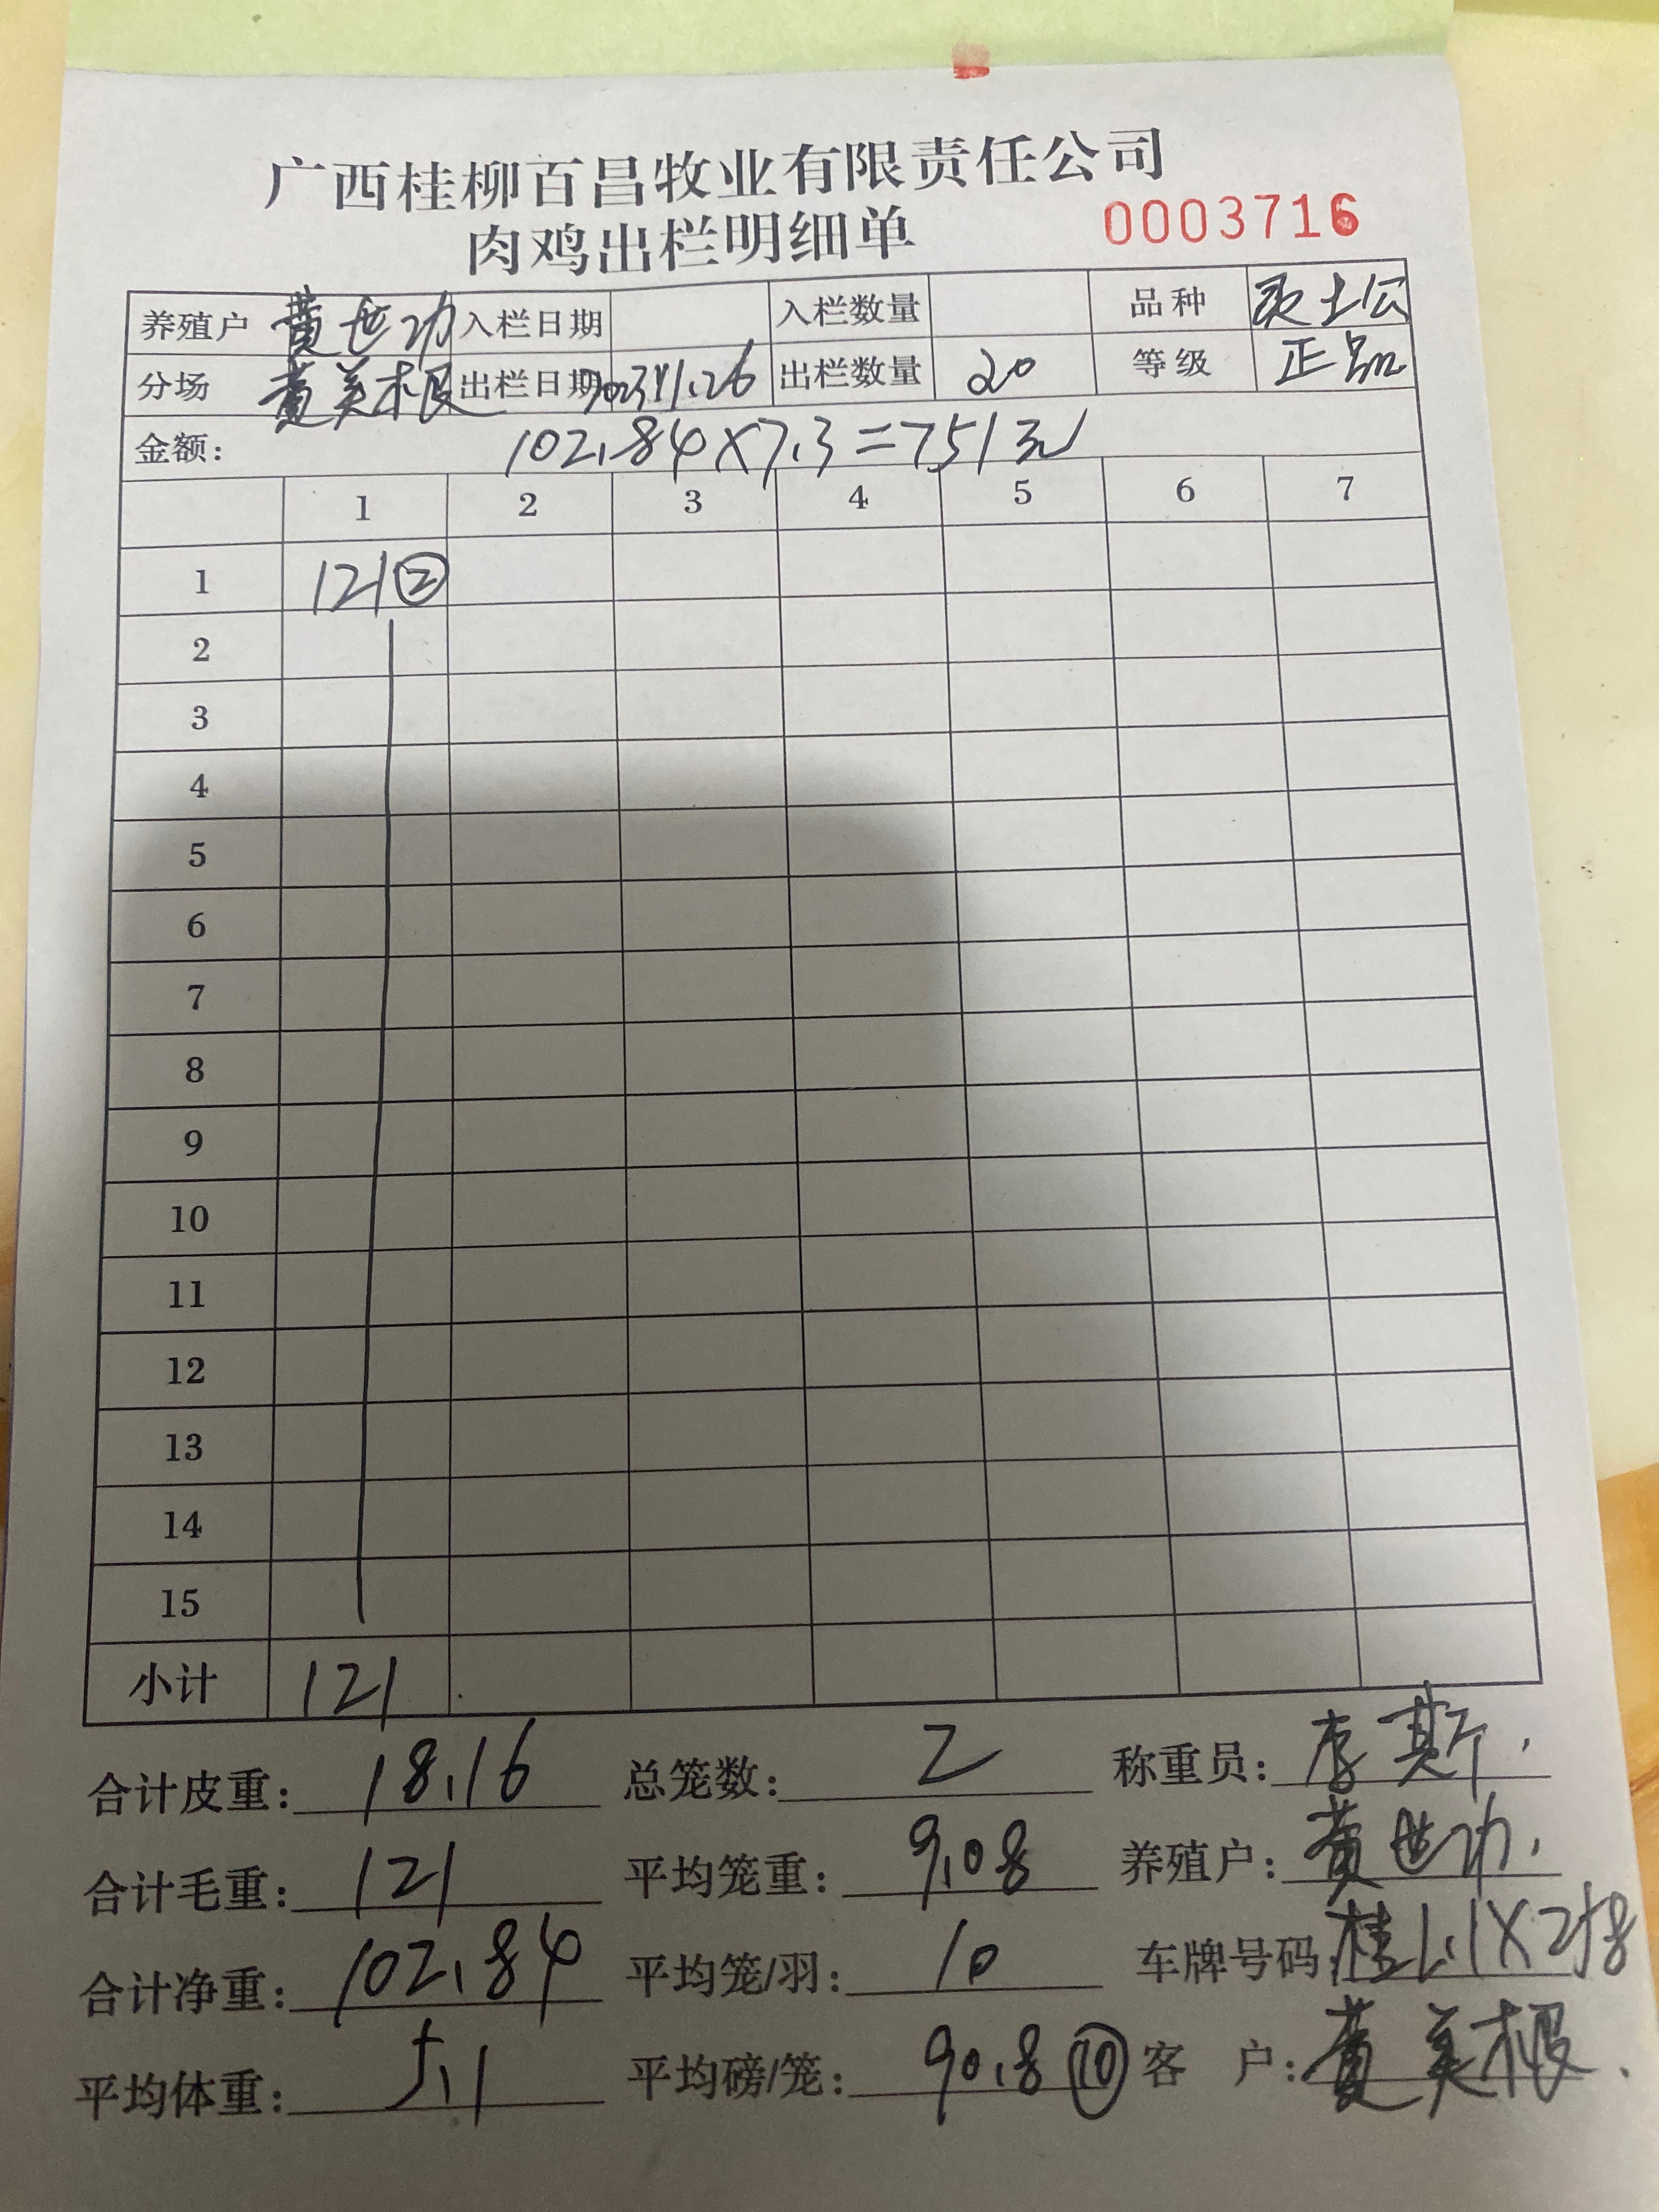 广西桂柳百昌牧业有限责任公司
肉鸡出栏明细单
0003716
养殖户 黄世功 入栏日期 入栏数量 品种 灵土公
分场 黄美根 出栏日期 出栏数量 20 等级 正品
金额: 102.84×7.3=751元
1 2 3 4 5 6 7
1 121②
2
3
4
5
6
7
8
9
10
11
12
13
14
15
小计 121
合计皮重: 18.16 总笼数: 2 称重员: 李斯
合计毛重: 121 平均笼重: 9.08 养殖户: 黄世功
合计净重: 102.84 平均笼/羽: 10 车牌号码:
平均体重: 5.1 平均磅/笼: 90.8⑩ 客户: 黄美根